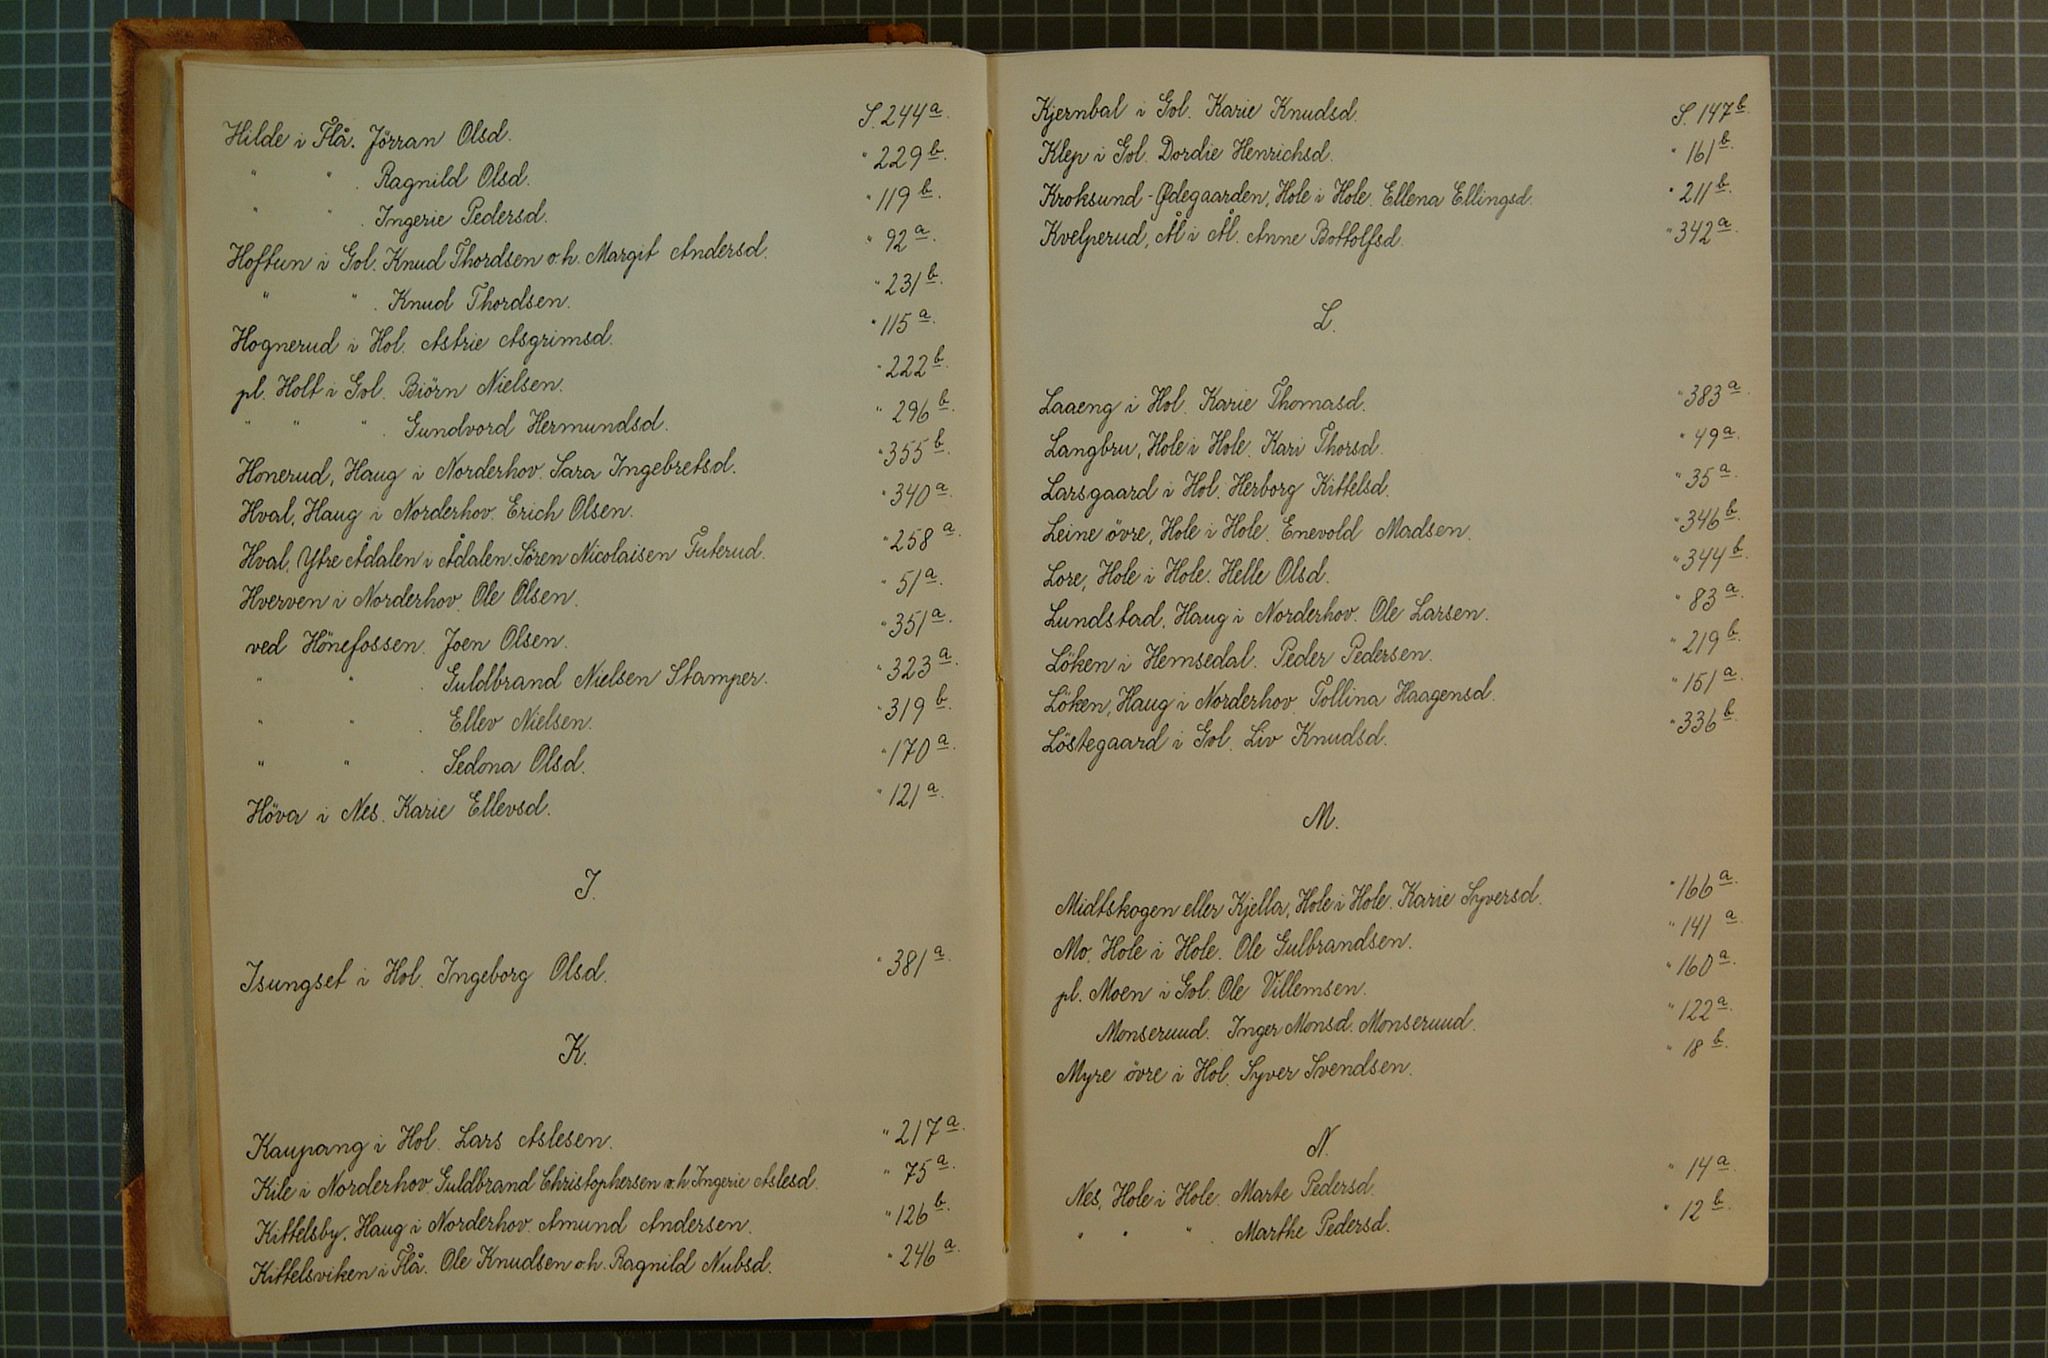 Hilde i Flå. Jörran Olsd. S. 244a.
" " . Ragnild Olsd. " 229b.
" " . Ingerie Pedersd. " 119b.
Hoftun i Gol. Knud Thordsen o.h. Margit Andersd. " 92a.
" " . Knud Thordsen. " 231b.
Hognerud i Hol. Astrie Asgrimsd. " 115a.
pl. Holt i Gol. Biörn Nielsen. " 222b.
" " " . Gundvord Hermundsd. " 296b.
Honerud, Haug i Norderhov. Sara Ingebretsd. " 355b.
Hval, Haug i Norderhov. Erich Olsen. " 340a.
Hval, Ytre Ådalen i Ådalen. Sören Nicolaisen Tuterud. " 258a.
Hverven i Norderhov. Ole Olsen. " 51a.
ved Hönefossen. Joen Olsen. " 351a.
" " . Guldbrand Nielsen Stamper. " 323a.
" " . Ellev Nielsen. " 319b.
" " . Sedona Olsd. " 170a.
Höva i Nes. Karie Ellevsd. " 121a.
I.
Isungset i Hol. Ingeborg Olsd. " 381a.
K.
Kaupang i Hol. Lars Aslesen. " 217a.
Kile i Norderhov. Guldbrand Christophersen o.h. Ingerie Aslesd. " 75a.
Kittelsby, Haug i Norderhov. Amund Andersen. " 126b.
Kittelsviken i Flå. Ole Knudsen o.h. Ragnild Nubsd. " 246a.
Kjernbal i Gol. Karie Knudsd. S. 147b.
Klep i Gol. Dordie Henrichsd. " 161b.
Kroksund-Ødegaarden, Hole i Hole. Ellena Ellingsd. " 211b.
Kvelperud, Ål i Ål. Anne Bottolfsd. " 342a.
L.
Laaeng i Hol. Karie Thomasd. " 383a.
Langbru, Hole i Hole. Kari Thorsd. " 49a.
Larsgaard i Hol. Herborg Kittelsd. " 35a.
Leine övre, Hole i Hole. Enevold Madsen. " 346b.
Lore, Hole i Hole. Helle Olsd. " 344b.
Lundstad, Haug i Norderhov. Ole Larsen. " 83a.
Löken i Hemsedal. Peder Pedersen. " 219b.
Löken, Haug i Norderhov. Tollina Haagensd. " 151a.
Löstegaard i Gol. Liv Knudsd. " 336b.
M.
Midtskogen eller Kjella, Hole i Hole. Karie Syversd. " 166a.
Mo, Hole i Hole. Ole Gulbrandsen. " 141a.
pl. Moen i Gol. Ole Villemsen. " 160a.
Monseruud. Inger Monsd. Monseruud. " 122a.
Myre övre i Hol. Syver Svendsen. " 18b.
N.
Nes, Hole i Hole. Marte Pedersd. " 14a.
" " " . Marthe Pedersd. " 12b.